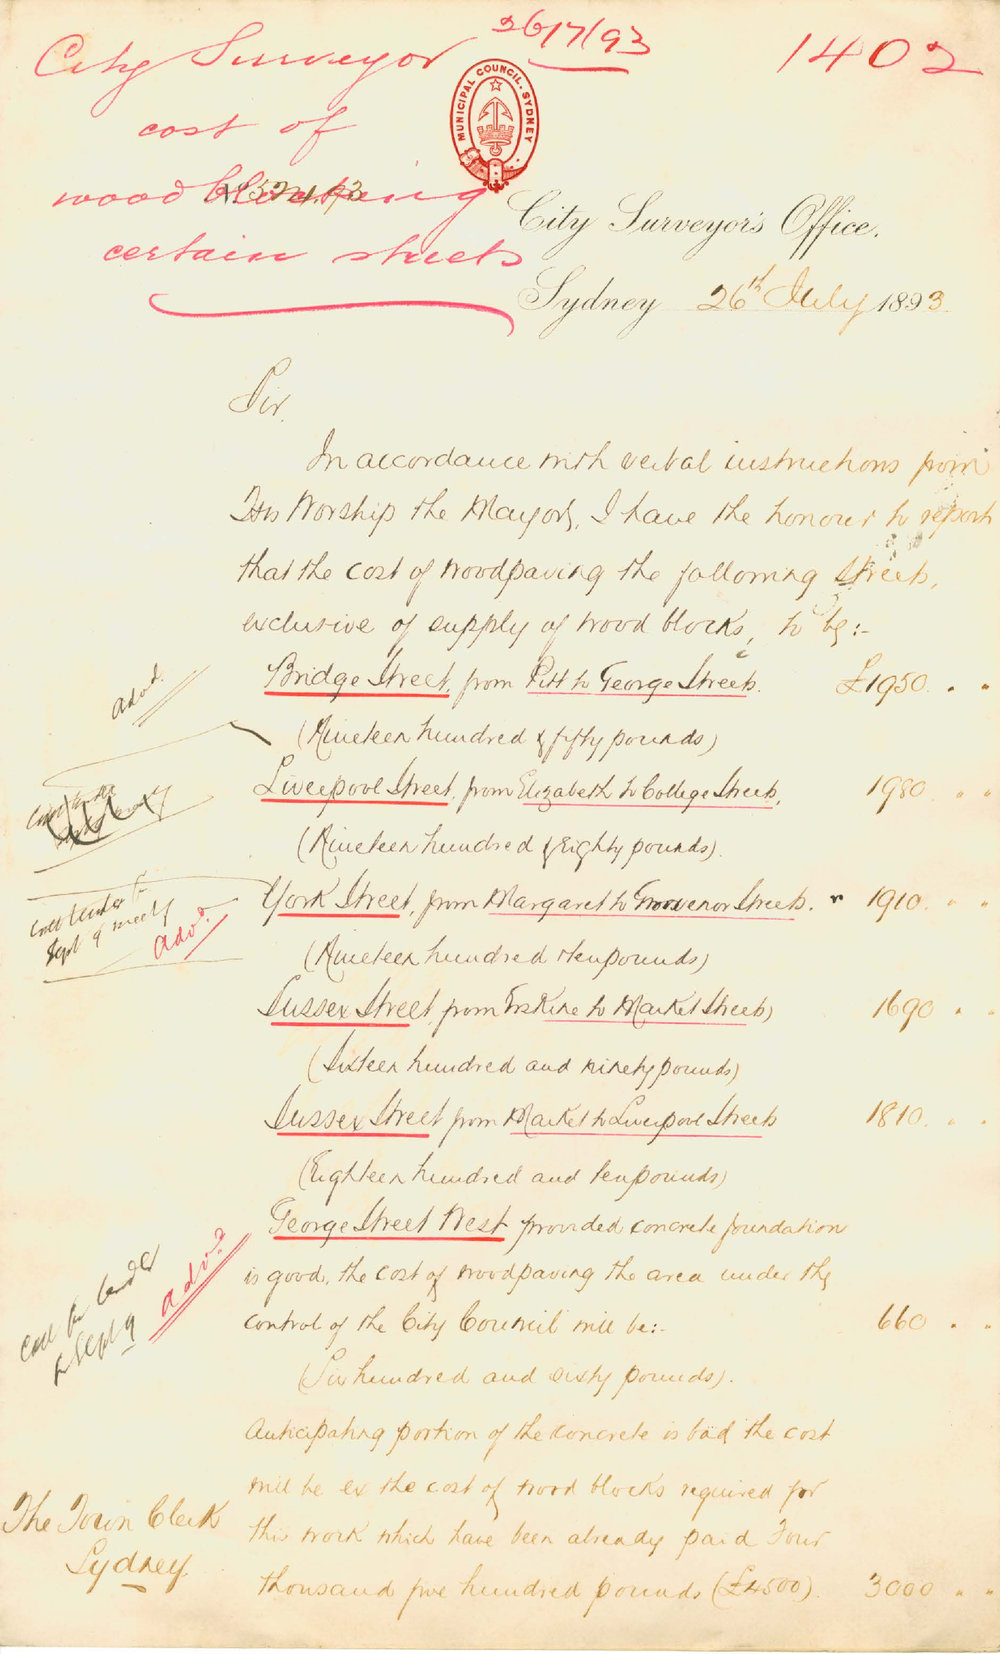 26/7/93
1402
City Surveyor
cost of
woodblocking
certain streets
MUNICIPAL COUNCIL. SYDNEY
City Surveyor's Office.
Sydney 26th July 1893.
Sir.
In accordance with verbal instructions from
His Worship the Mayor, I have the honour to report
that the cost of woodpaving the following streets,
exclusive of supply of wood blocks, to be:-
Bridge Street, from Pitt to George Streets. £1950. " "
Advd.
(Nineteen hundred & fifty pounds)
Liverpool Street, from Elizabeth to College Streets, 1980 " "
(Nineteen hundred & Eighty pounds).
York Street, from Margaret to Grosvenor Streets. 1910. " "
Call tender for
Sept 9 meetg
Advd.
(Nineteen hundred & ten pounds)
Sussex Street, from Erskine to Market Streets) 1690 " "
(Sixteen hundred and ninety pounds)
Sussex Street from Market to Liverpool Streets 1810. " "
(Eighteen hundred and ten pounds)
George Street West provided concrete foundation
is good, the cost of woodpaving the area under the
control of the City Council will be:- 660 " "
Advd.
Sept 9
(Six hundred and sixty pounds).
Anticipating portion of the concrete is bad the cost
will be ex the cost of wood blocks required for
this work which have been already paid Four
thousand five hundred pounds (£4500). 3000 " "
The Town Clerk
Sydney.